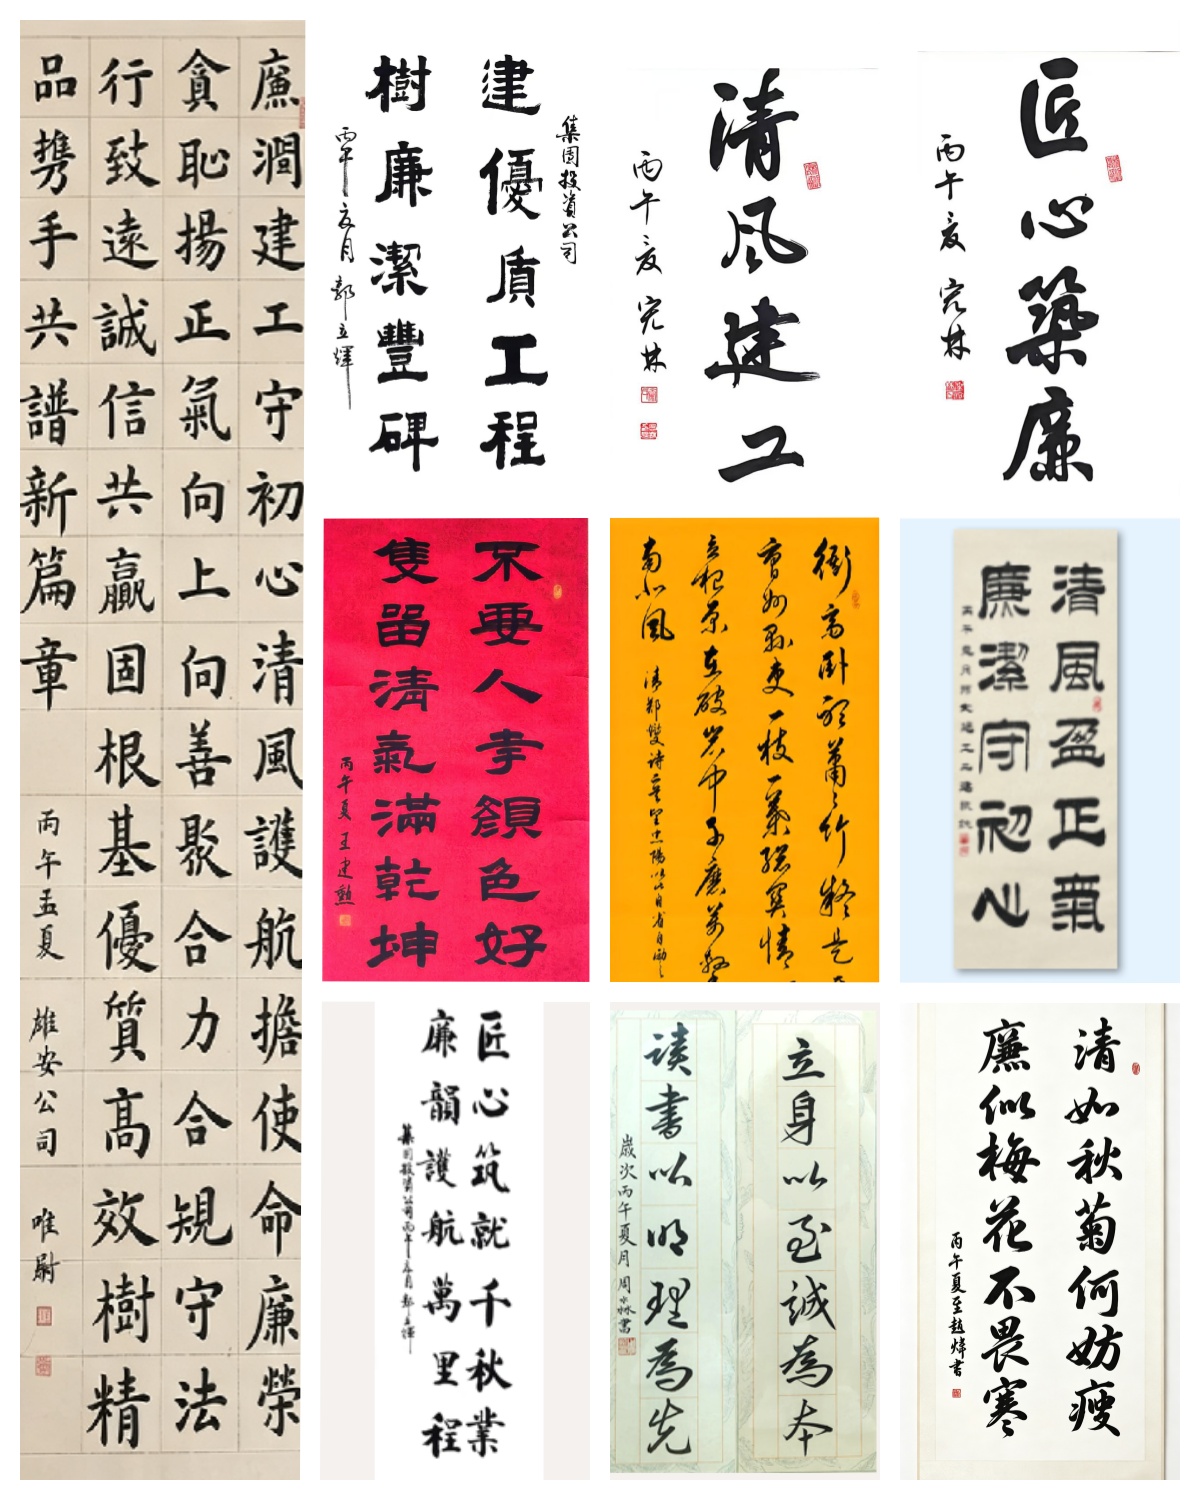 廉潤建工守初心清風護航擔使命廉榮
貪恥揚正氣向上向善聚合力合規守法
行致遠誠信共贏固根基優質高效樹精
品携手共譜新篇章
丙午孟夏 雄安公司 唯尉
集團投資公司
建優質工程
樹廉潔豐碑
丙午夏月郭立輝
清風建工
丙午夏 完林
匠心築廉
丙午夏 完林
不要人夸顏色好
隻留清氣滿乾坤
丙午夏王建勳
衙齋卧聽蕭々竹疑是
曹州縣吏一枝一葉總關情
立根原在破岩中千磨萬擊
南北風
清風盈正氣
廉潔守初心
匠心筑就千秋業
廉韻護航萬里程
集團投資公司丙午夏月郭立輝
立身以至誠為本
讀書以明理為先
歲次丙午夏月周永林書
清如秋菊何妨瘦
廉似梅花不畏寒
丙午夏至趙煒書